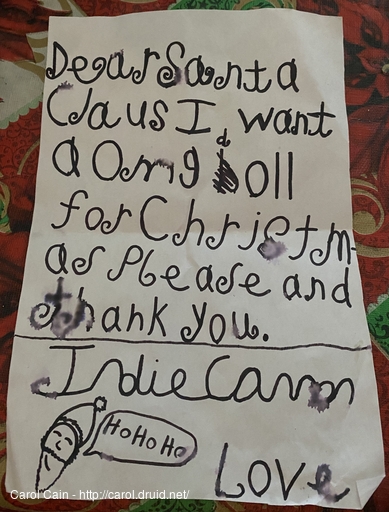 Dear Santa
Claus I want
a omg doll
for Christm-
as Please and
thank you.
Indie Cann
Ho Ho Ho
Love
Carol Cain - http://carol.druid.net/